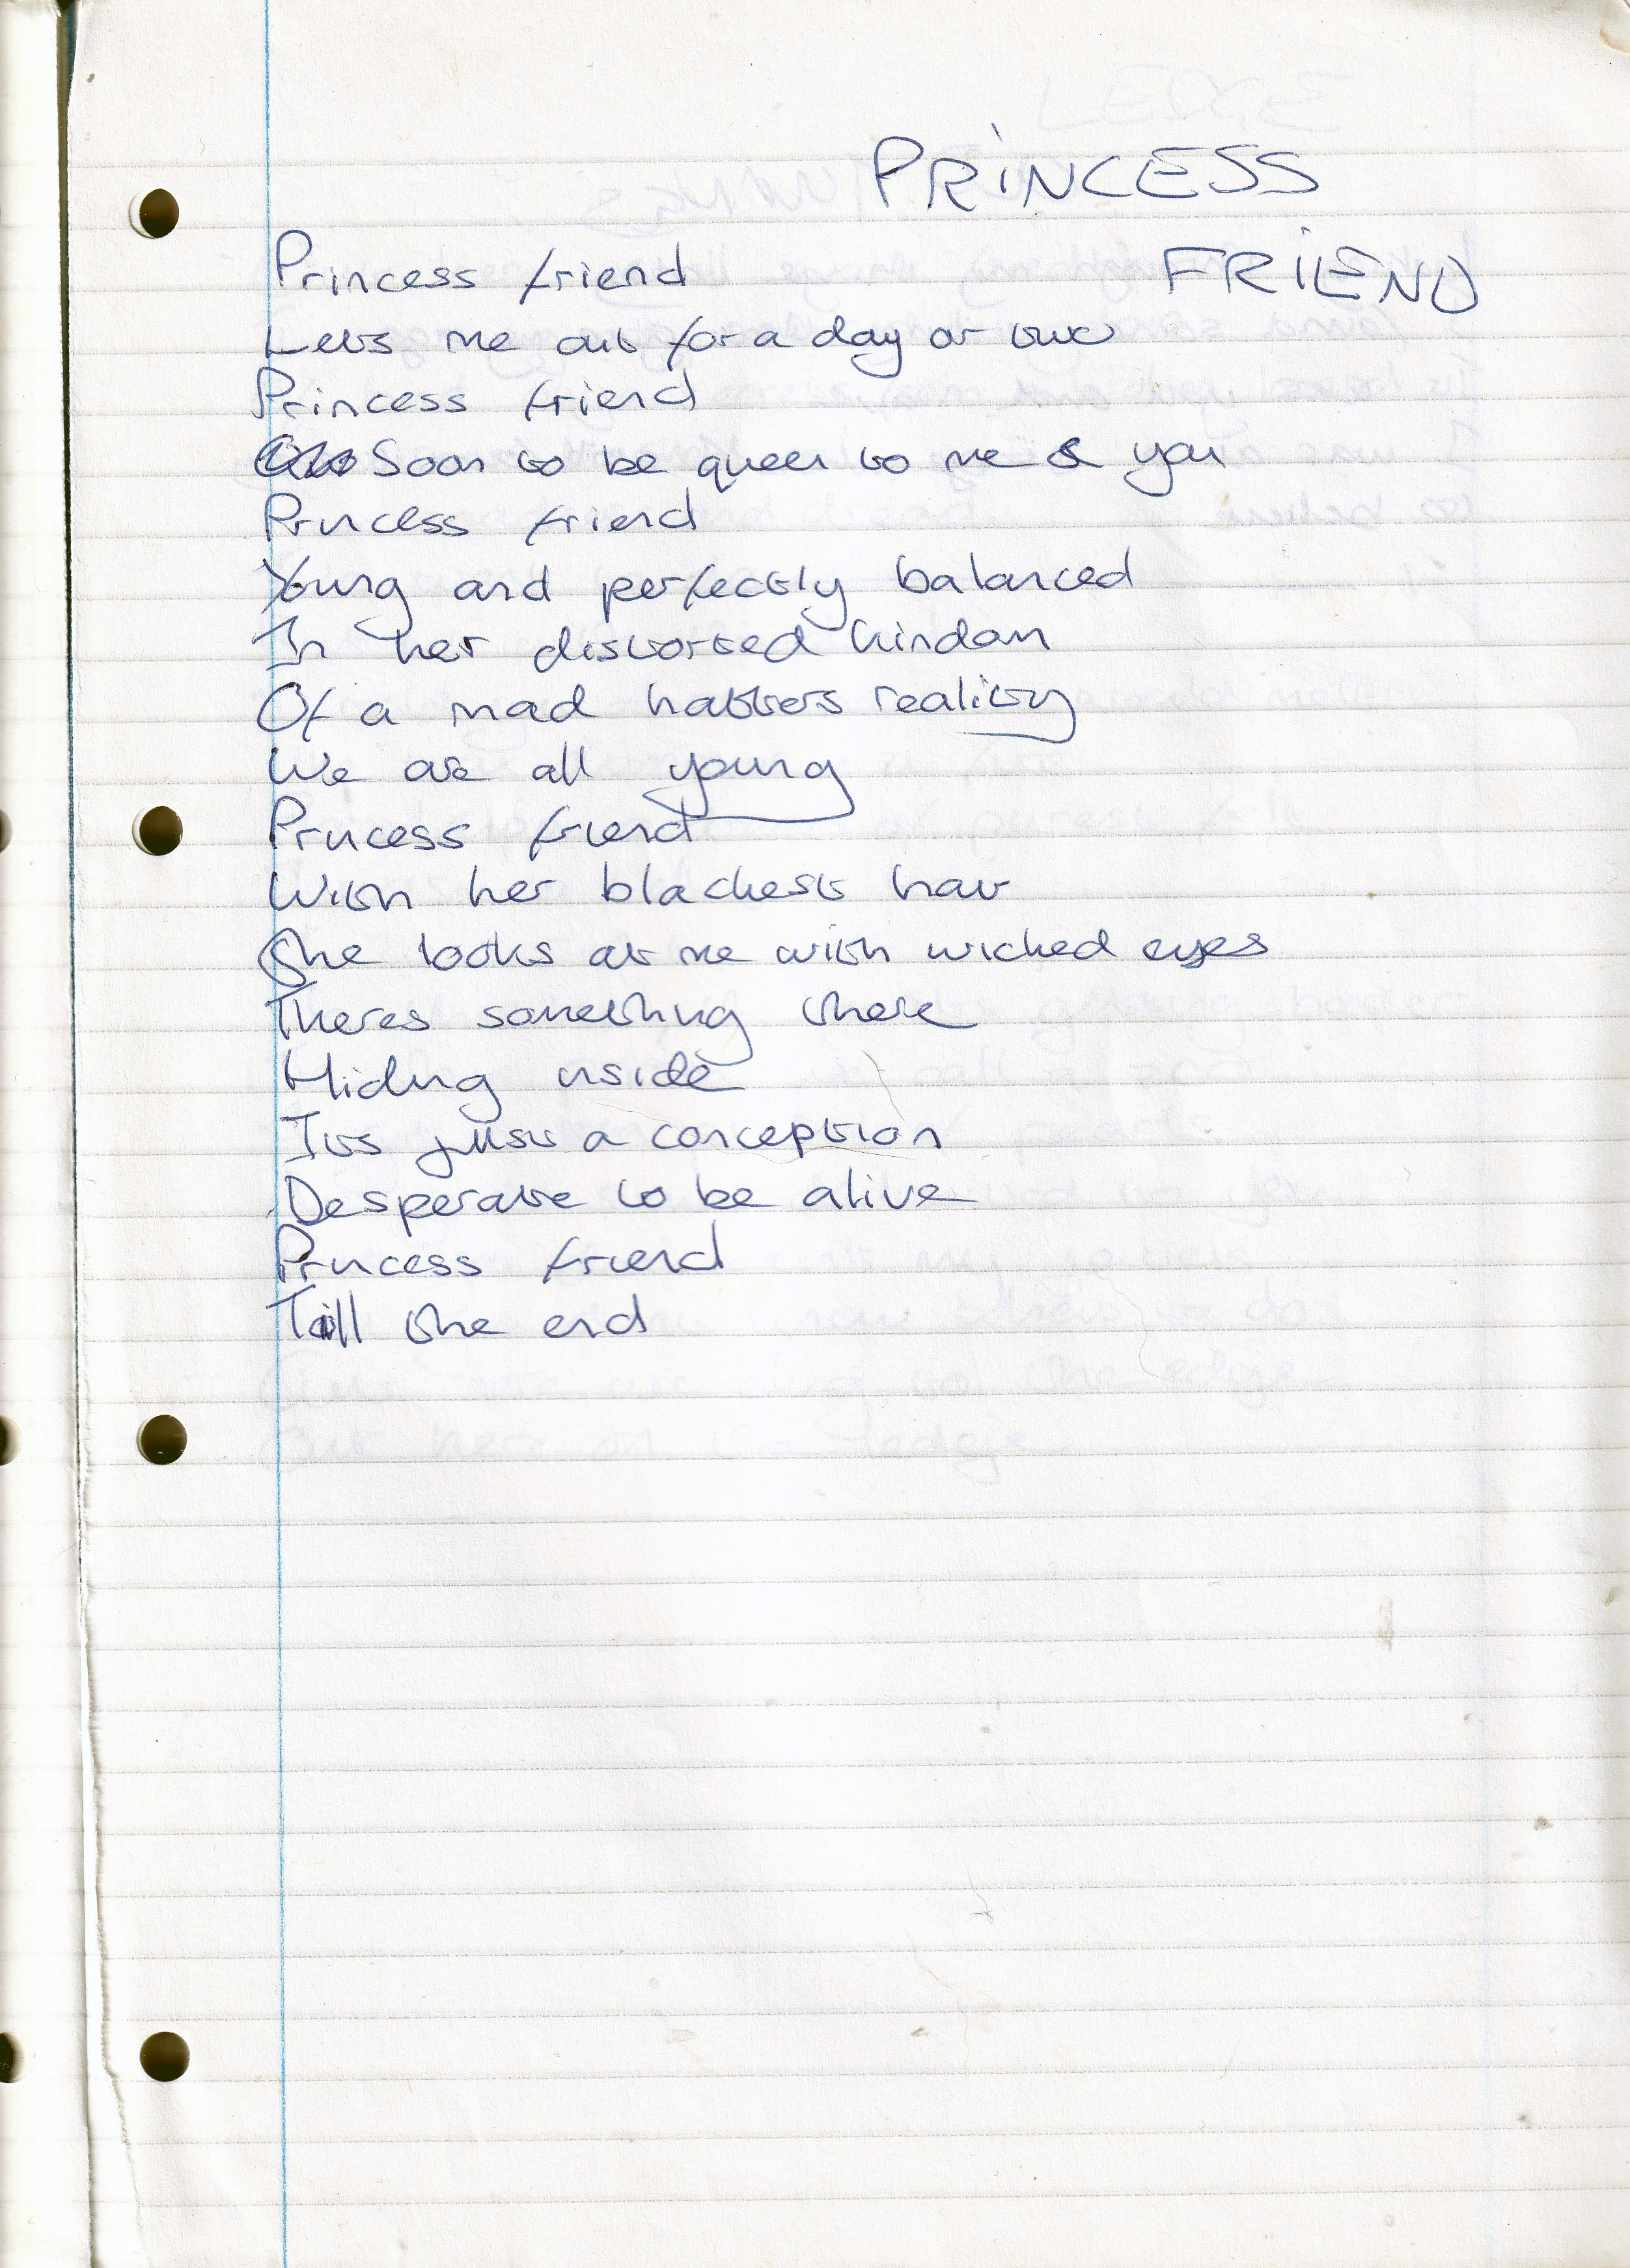 PRINCESS
FRIEND
Princess friend
Lets me out for a day or two
Princess friend
Soon to be queen to me & you
Princess friend
Young and perfectly balanced
In her distorted kindom
Of a mad hatters reality
We are all young
Princess friend
With her blackest hair
She looks at me with wicked eyes
Theres something there
Hiding inside
Its just a conception
Desperate to be alive
Princess friend
Till the end